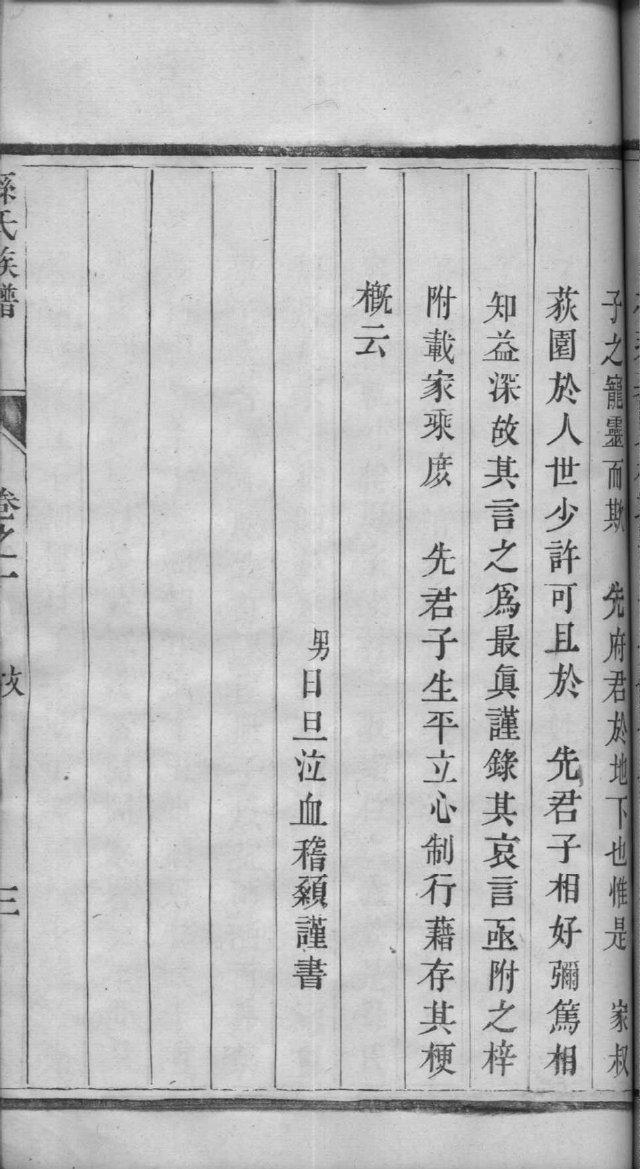 子之寵靈而欺　先府君於地下也惟是　家叔
荻園於人世少許可且於　先君子相好彌篤相
知益深故其言之爲最眞謹錄其哀言亟附之梓
附載家乘庶　先君子生平立心制行藉存其梗
概云
男日旦泣血稽顙謹書
孫氏族譜
卷之一
三